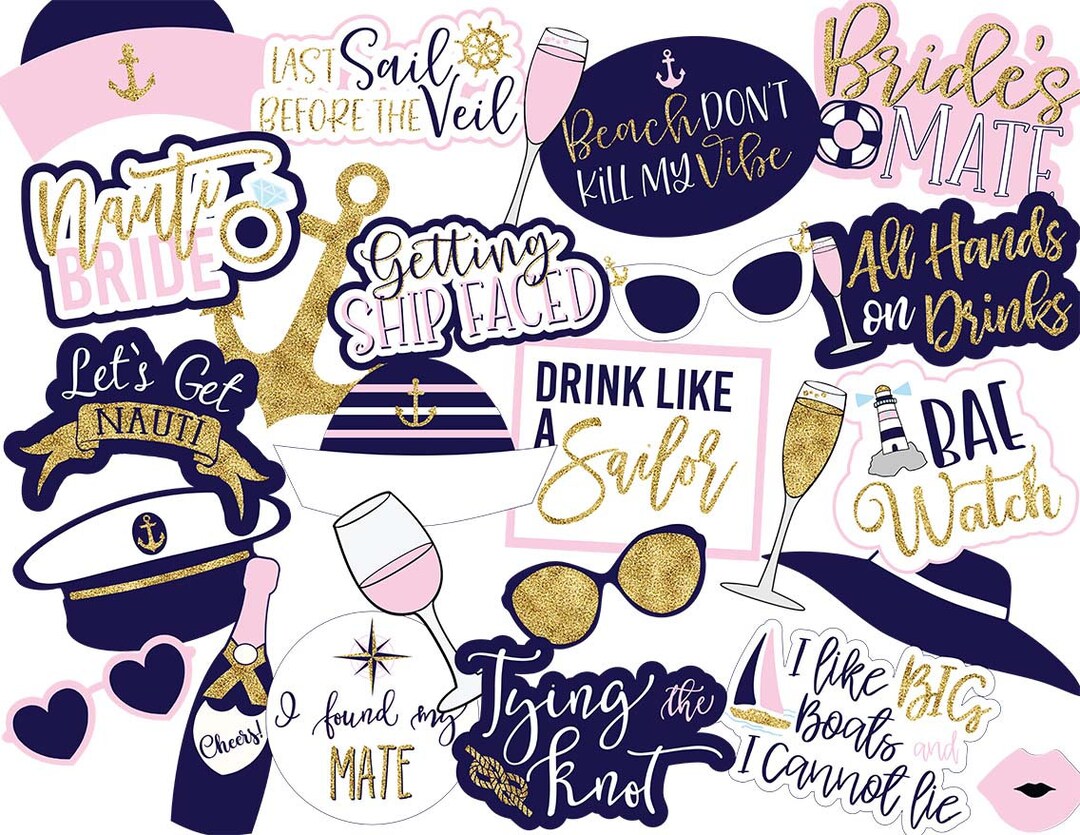 LAST Sail
BEFORE THE Veil
Beach DON'T
KILL MY Vibe
Bride's
MATE
Nauti
BRIDE
Getting
SHIP FACED
All Hands
on Drinks
Let's Get
NAUTI
DRINK LIKE
A Sailor
BAE
Watch
Cheers!
I found my
MATE
Tying the
Knot
I like BIG
Boats and
I Cannot lie